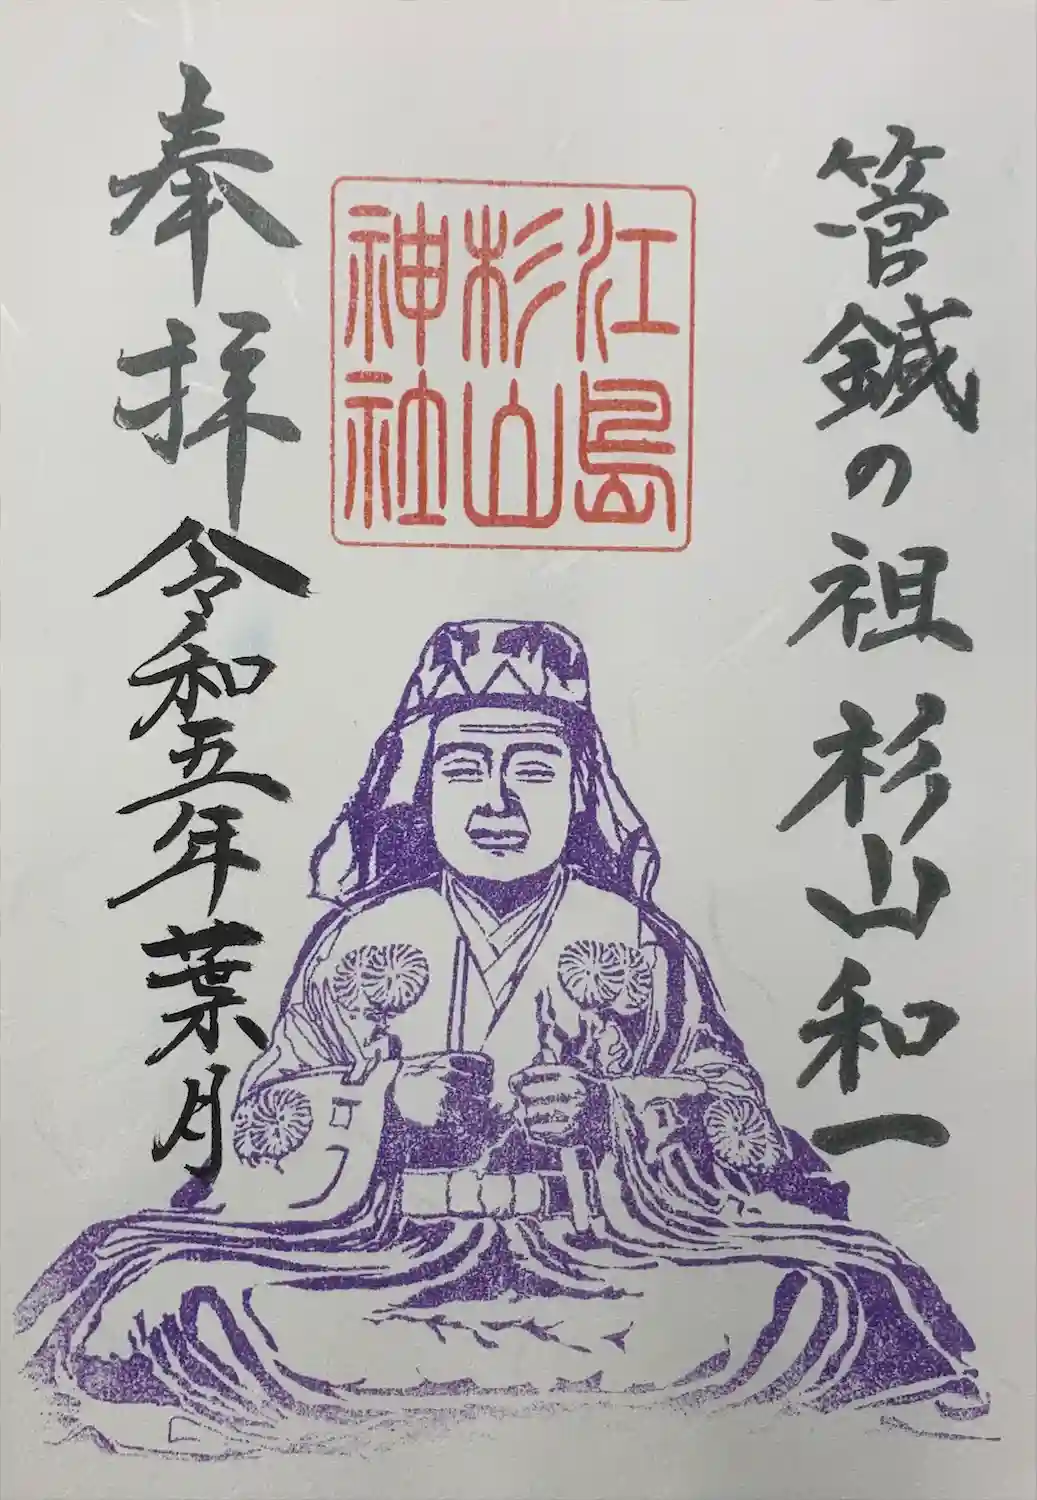 管鍼の祖 杉山和一
江島
杉山
神社
奉拝
令和五年葉月